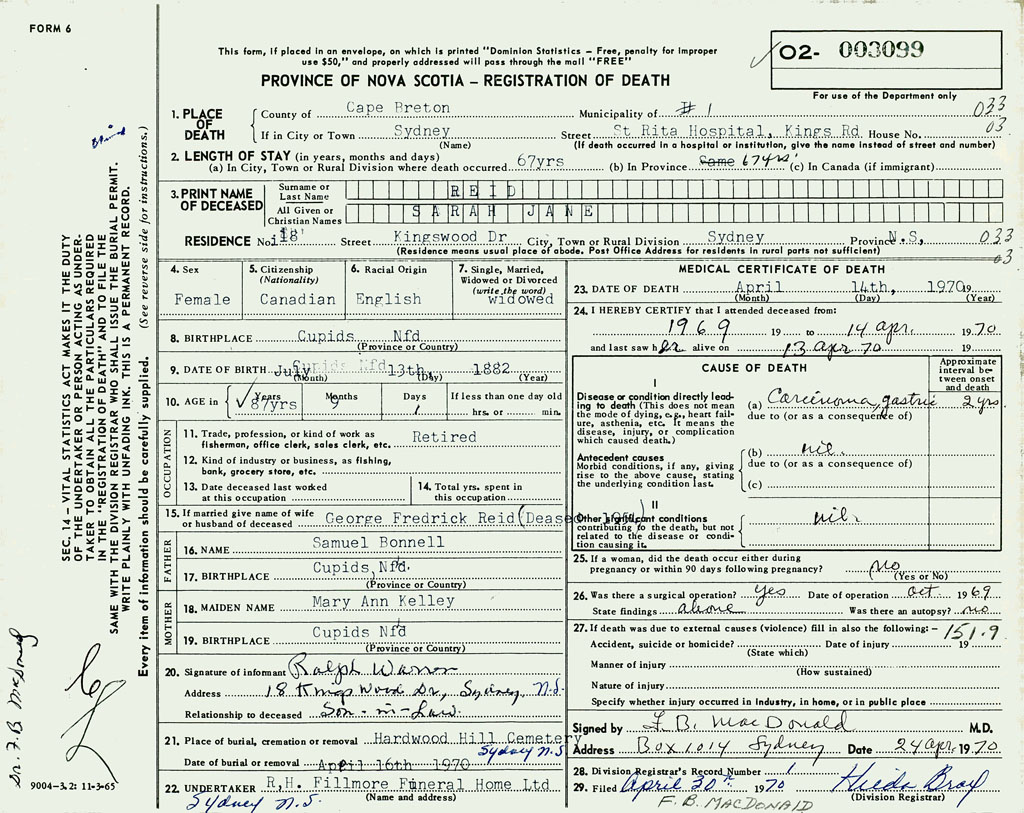 FORM 6
This form, if placed in an envelope, on which is printed "Dominion Statistics – Free, penalty for improper
use $50," and properly addressed will pass through the mail "FREE"
PROVINCE OF NOVA SCOTIA – REGISTRATION OF DEATH
02- 003099
For use of the Department only
1. PLACE OF DEATH
County of Cape Breton Municipality of #1 033
If in City or Town Sydney Street St Rita Hospital, Kings Rd House No. 03
(Name) (If death occurred in a hospital or institution, give the name instead of street and number)
2. LENGTH OF STAY (in years, months and days)
(a) In City, Town or Rural Division where death occurred 67yrs (b) In Province Same 67yrs (c) In Canada (if immigrant)
3. PRINT NAME OF DECEASED
Surname or Last Name REID
All Given or Christian Names SARAH JANE
RESIDENCE No. 18 Street Kingswood Dr City, Town or Rural Division Sydney Province N.S, 033
(Residence means usual place of abode. Post Office Address for residents in rural parts not sufficient) 03
4. Sex
Female
5. Citizenship (Nationality)
Canadian
6. Racial Origin
English
7. Single, Married, Widowed or Divorced (write the word)
widowed
8. BIRTHPLACE Cupids Nfd
(Province or Country)
9. DATE OF BIRTH July 13th, 1882
(Month) (Day) (Year)
10. AGE in Years Months Days If less than one day old
87yrs 9 1 hrs. or min.
OCCUPATION
11. Trade, profession, or kind of work as Retired
fisherman, office clerk, sales clerk, etc.
12. Kind of industry or business, as fishing,
bank, grocery store, etc.
13. Date deceased last worked at this occupation
14. Total yrs. spent in this occupation
15. If married give name of wife or husband of deceased George Fredrick Reid (Deased
FATHER
16. NAME Samuel Bonnell
17. BIRTHPLACE Cupids, Nfd.
(Province or Country)
MOTHER
18. MAIDEN NAME Mary Ann Kelley
19. BIRTHPLACE Cupids Nfd
(Province or Country)
20. Signature of informant Ralph Warren
Address 18 Kings Wood Dr, Sydney, N.S.
Relationship to deceased Son-in-Law
21. Place of burial, cremation or removal Hardwood Hill Cemetery
Sydney N.S
Date of burial or removal April 16th 1970
22. UNDERTAKER R.H. Fillmore Funeral Home Ltd
(Name and address)
Sydney N.S.
MEDICAL CERTIFICATE OF DEATH
23. DATE OF DEATH April 14th, 1970 19
(Month) (Day) (Year)
24. I HEREBY CERTIFY that I attended deceased from:
1969 19 to 14 apr. 1970
and last saw her alive on 13 apr 70 19
CAUSE OF DEATH
Approximate interval between onset and death
I
Disease or condition directly leading to death (This does not mean the mode of dying, e.g., heart failure, asthenia, etc. It means the disease, injury, or complication which caused death.)
(a) Carcinoma, gastric 2 yrs
due to (or as a consequence of)
Antecedent causes
Morbid conditions, if any, giving rise to the above cause, stating the underlying condition last.
(b) nil.
due to (or as a consequence of)
(c)
II
Other significant conditions
contributing to the death, but not related to the disease or condition causing it.
nil
25. If a woman, did the death occur either during
pregnancy or within 90 days following pregnancy? no
(Yes or No)
26. Was there a surgical operation? yes Date of operation oct 1969
State findings above Was there an autopsy? no
27. If death was due to external causes (violence) fill in also the following:– 151.9
Accident, suicide or homicide? Date of injury 19
(State which)
Manner of injury
(How sustained)
Nature of injury
Specify whether injury occurred in industry, in home, or in public place
Signed by F. B. MacDonald M.D.
Address Box 1014 Sydney Date 24 apr. 1970
28. Division Registrar's Record Number 1
29. Filed April 30th 1970
(Division Registrar)
F. B. MACDONALD
SEC. 14 – VITAL STATISTICS ACT MAKES IT THE DUTY
OF THE UNDERTAKER OR PERSON ACTING AS UNDER-
TAKER TO OBTAIN ALL THE PARTICULARS REQUIRED
IN THE "REGISTRATION OF DEATH" AND TO FILE THE
SAME WITH THE DIVISION REGISTRAR WHO SHALL ISSUE THE BURIAL PERMIT.
WRITE PLAINLY WITH UNFADING INK. THIS IS A PERMANENT RECORD.
Every item of information should be carefully supplied. (See reverse side for instructions.)
Dr. F. B. McDonald
9004-3.2: 11-3-65